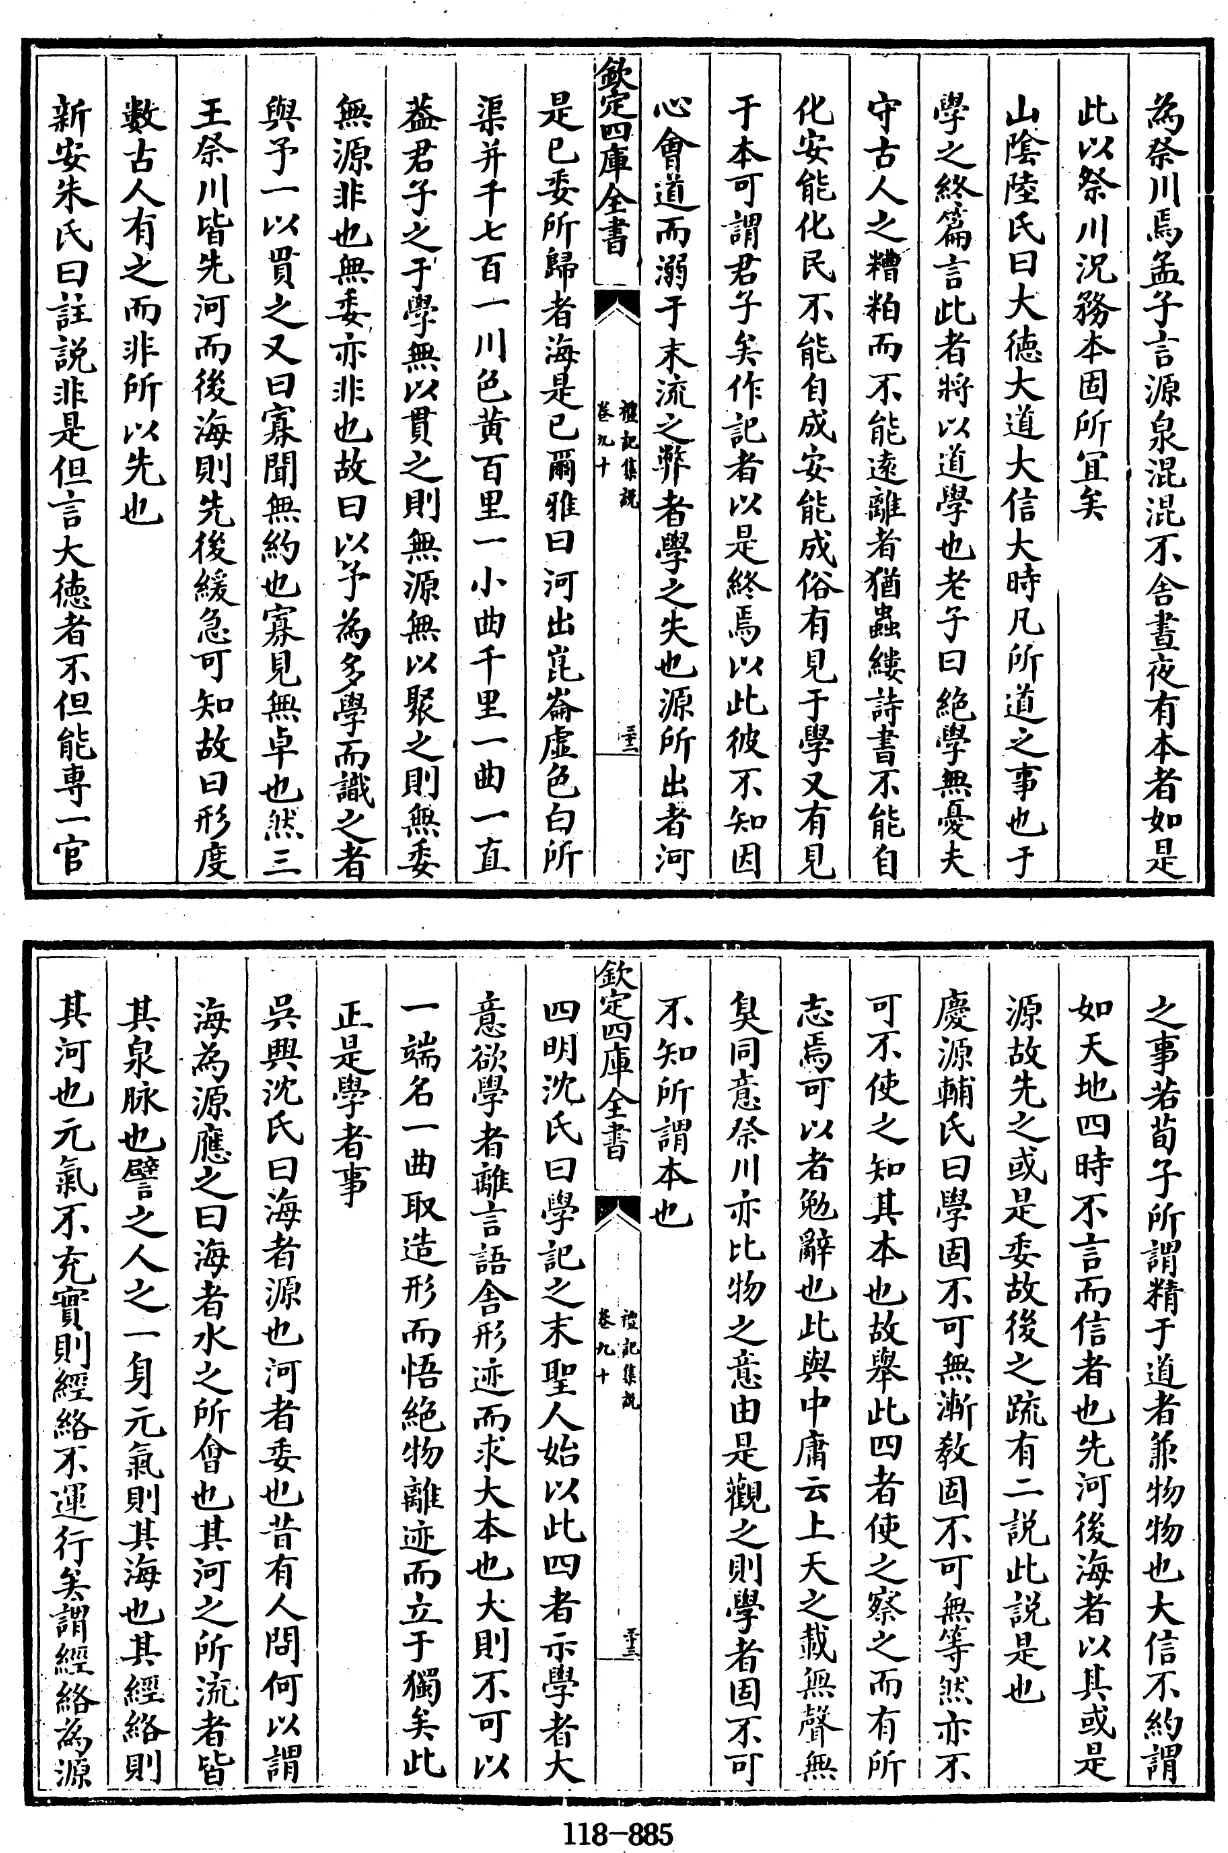 為祭川焉孟子言源泉混混不舍晝夜有本者如是
此以祭川況務本固所宜矣
山陰陸氏曰大德大道大信大時凡所道之事也于
學之終篇言此者將以道學也老子曰絶學無憂夫
守古人之糟粕而不能遠離者猶蟲縷詩書不能自
化安能化民不能自成安能成俗有見于學又有見
于本可謂君子矣作記者以是終焉以此彼不知因
心會道而溺于末流之弊者學之失也源所出者河
欽定四庫全書
禮記集說
卷九十
三十二
是已委所歸者海是已爾雅曰河出崑崙虛色白所
渠并千七百一川色黄百里一小曲千里一曲一直
葢君子之于學無以貫之則無源無以聚之則無委
無源非也無委亦非也故曰以予為多學而識之者
與予一以貫之又曰寡聞無約也寡見無卓也然三
王祭川皆先河而後海則先後緩急可知故曰形度
數古人有之而非所以先也
新安朱氏曰註說非是但言大徳者不但能専一官
之事若荀子所謂精于道者兼物物也大信不約謂
如天地四時不言而信者也先河後海者以其或是
源故先之或是委故後之疏有二說此說是也
慶源輔氏曰學固不可無漸教固不可無等然亦不
可不使之知其本也故舉此四者使之察之而有所
志焉可以者勉辭也此與中庸云上天之載無聲無
臭同意祭川亦比物之意由是觀之則學者固不可
不知所謂本也
欽定四庫全書
禮記集說
卷九十
三十三
四明沈氏曰學記之末聖人始以此四者示學者大
意欲學者離言語舍形迹而求大本也大則不可以
一端名一曲取造形而悟絶物離迹而立于獨矣此
正是學者事
吳興沈氏曰海者源也河者委也昔有人問何以謂
海為源應之曰海者水之所會也其河之所流者皆
其泉脉也譬之人之一身元氣則其海也其經絡則
其河也元氣不充實則經絡不運行矣謂經絡為源
118-885